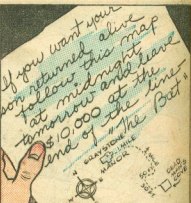 If you want your
son returned alive
follow this map
at midnight
tomorrow and leave
$10,000 at the
end of the line
"The Bat
GRAYSTONE
MANOR
1 MILE
50
GOLD
COVE